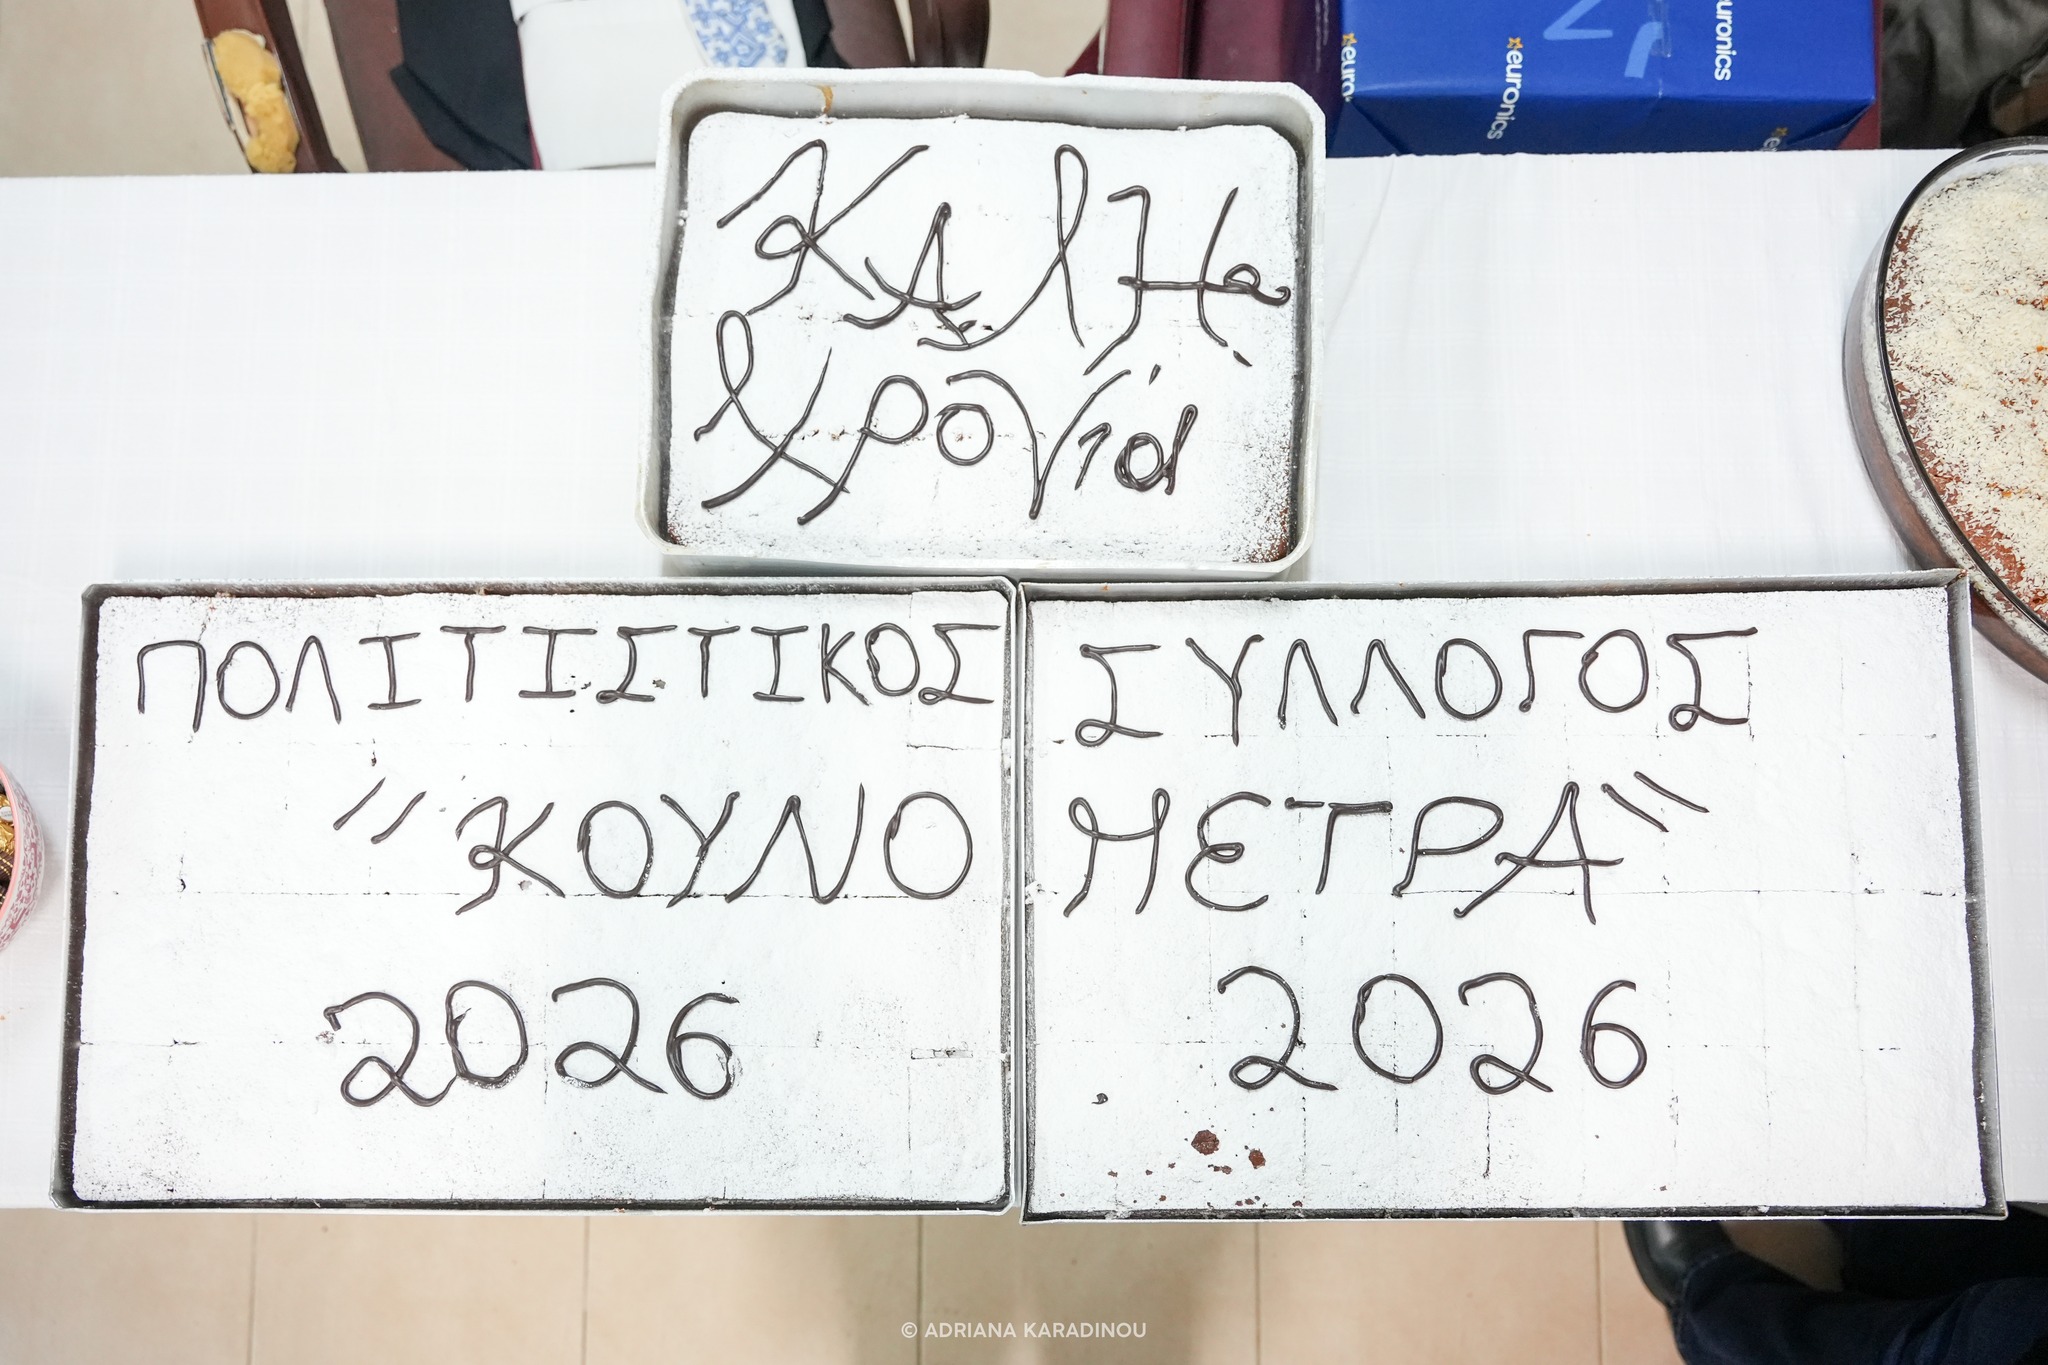 euronics
euronics
euronics
Καλη
Χρονιά
ΠΟΛΙΤΙΣΤΙΚΟΣ
"ΚΟΥΝΟ
2026
ΣΥΛΛΟΓΟΣ
ΜΕΤΡΑ"
2026
© ADRIANA KARADINOU